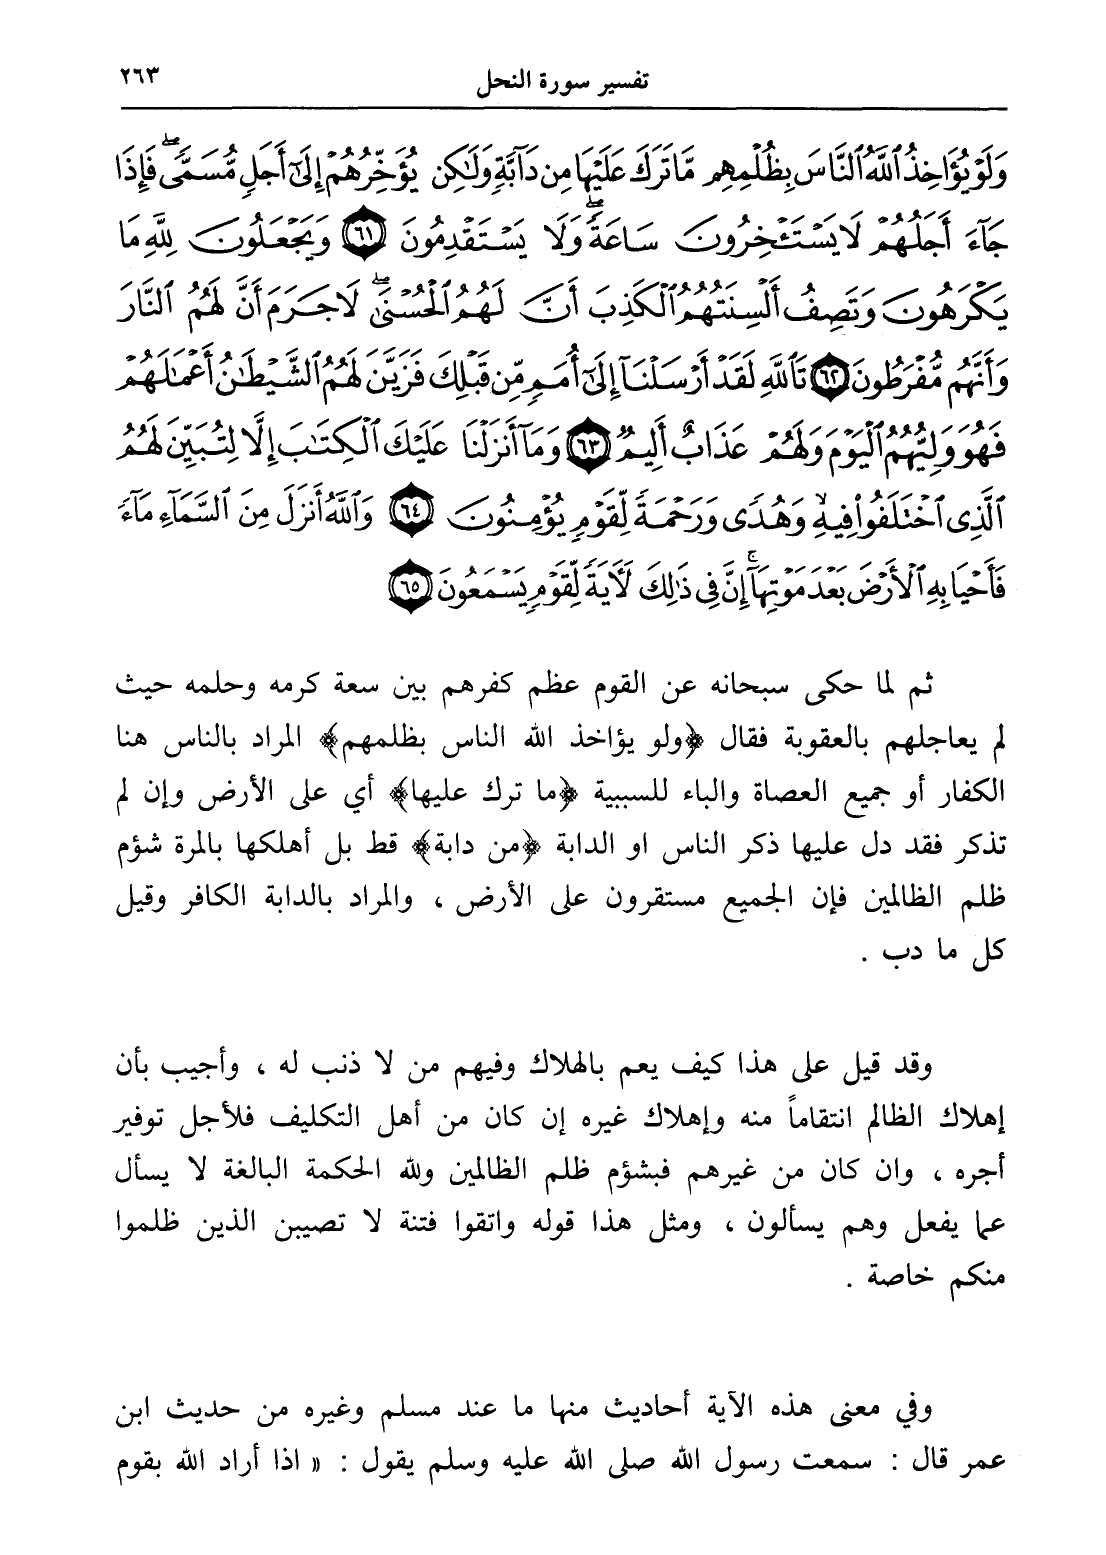 تفسير سورة النحل ٢٦٣
وَلَوْ يُؤَاخِذُ ٱللَّهُ ٱلنَّاسَ بِظُلْمِهِم مَّا تَرَكَ عَلَيْهَا مِن دَآبَّةٍ وَلَٰكِن يُؤَخِّرُهُمْ إِلَىٰٓ أَجَلٍ مُّسَمًّى ۖ فَإِذَا
جَآءَ أَجَلُهُمْ لَا يَسْتَـْٔخِرُونَ سَاعَةً ۖ وَلَا يَسْتَقْدِمُونَ ٦١ وَيَجْعَلُونَ لِلَّهِ مَا
يَكْرَهُونَ وَتَصِفُ أَلْسِنَتُهُمُ ٱلْكَذِبَ أَنَّ لَهُمُ ٱلْحُسْنَىٰ ۖ لَا جَرَمَ أَنَّ لَهُمُ ٱلنَّارَ
وَأَنَّهُم مُّفْرَطُونَ ٦٢ تَٱللَّهِ لَقَدْ أَرْسَلْنَآ إِلَىٰٓ أُمَمٍ مِّن قَبْلِكَ فَزَيَّنَ لَهُمُ ٱلشَّيْطَٰنُ أَعْمَٰلَهُمْ
فَهُوَ وَلِيُّهُمُ ٱلْيَوْمَ وَلَهُمْ عَذَابٌ أَلِيمٌ ٦٣ وَمَآ أَنزَلْنَا عَلَيْكَ ٱلْكِتَٰبَ إِلَّا لِتُبَيِّنَ لَهُمُ
ٱلَّذِى ٱخْتَلَفُوا۟ فِيهِ ۙ وَهُدًى وَرَحْمَةً لِّقَوْمٍ يُؤْمِنُونَ ٦٤ وَٱللَّهُ أَنزَلَ مِنَ ٱلسَّمَآءِ مَآءً
فَأَحْيَا بِهِ ٱلْأَرْضَ بَعْدَ مَوْتِهَآ ۚ إِنَّ فِى ذَٰلِكَ لَـَٔايَةً لِّقَوْمٍ يَسْمَعُونَ ٦٥
ثم لما حكى سبحانه عن القوم عظم كفرهم بين سعة كرمه وحلمه حيث
لم يعاجلهم بالعقوبة فقال ﴿ولو يؤاخذ الله الناس بظلمهم﴾ المراد بالناس هنا
الكفار أو جميع العصاة والباء للسببية ﴿ما ترك عليها﴾ أي على الأرض وإن لم
تذكر فقد دل عليها ذكر الناس او الدابة ﴿من دابة﴾ قط بل أهلكها بالمرة شؤم
ظلم الظالمين فإن الجميع مستقرون على الأرض ، والمراد بالدابة الكافر وقيل
كل ما دب .
وقد قيل على هذا كيف يعم بالهلاك وفيهم من لا ذنب له ، وأجيب بأن
إهلاك الظالم انتقاماً منه وإهلاك غيره إن كان من أهل التكليف فلأجل توفير
أجره ، وان كان من غيرهم فبشؤم ظلم الظالمين ولله الحكمة البالغة لا يسأل
عما يفعل وهم يسألون ، ومثل هذا قوله واتقوا فتنة لا تصيبن الذين ظلموا
منكم خاصة .
وفي معنى هذه الآية أحاديث منها ما عند مسلم وغيره من حديث ابن
عمر قال : سمعت رسول الله صلى الله عليه وسلم يقول : « اذا أراد الله بقوم